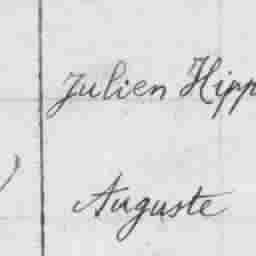 Julien Hipp
Auguste